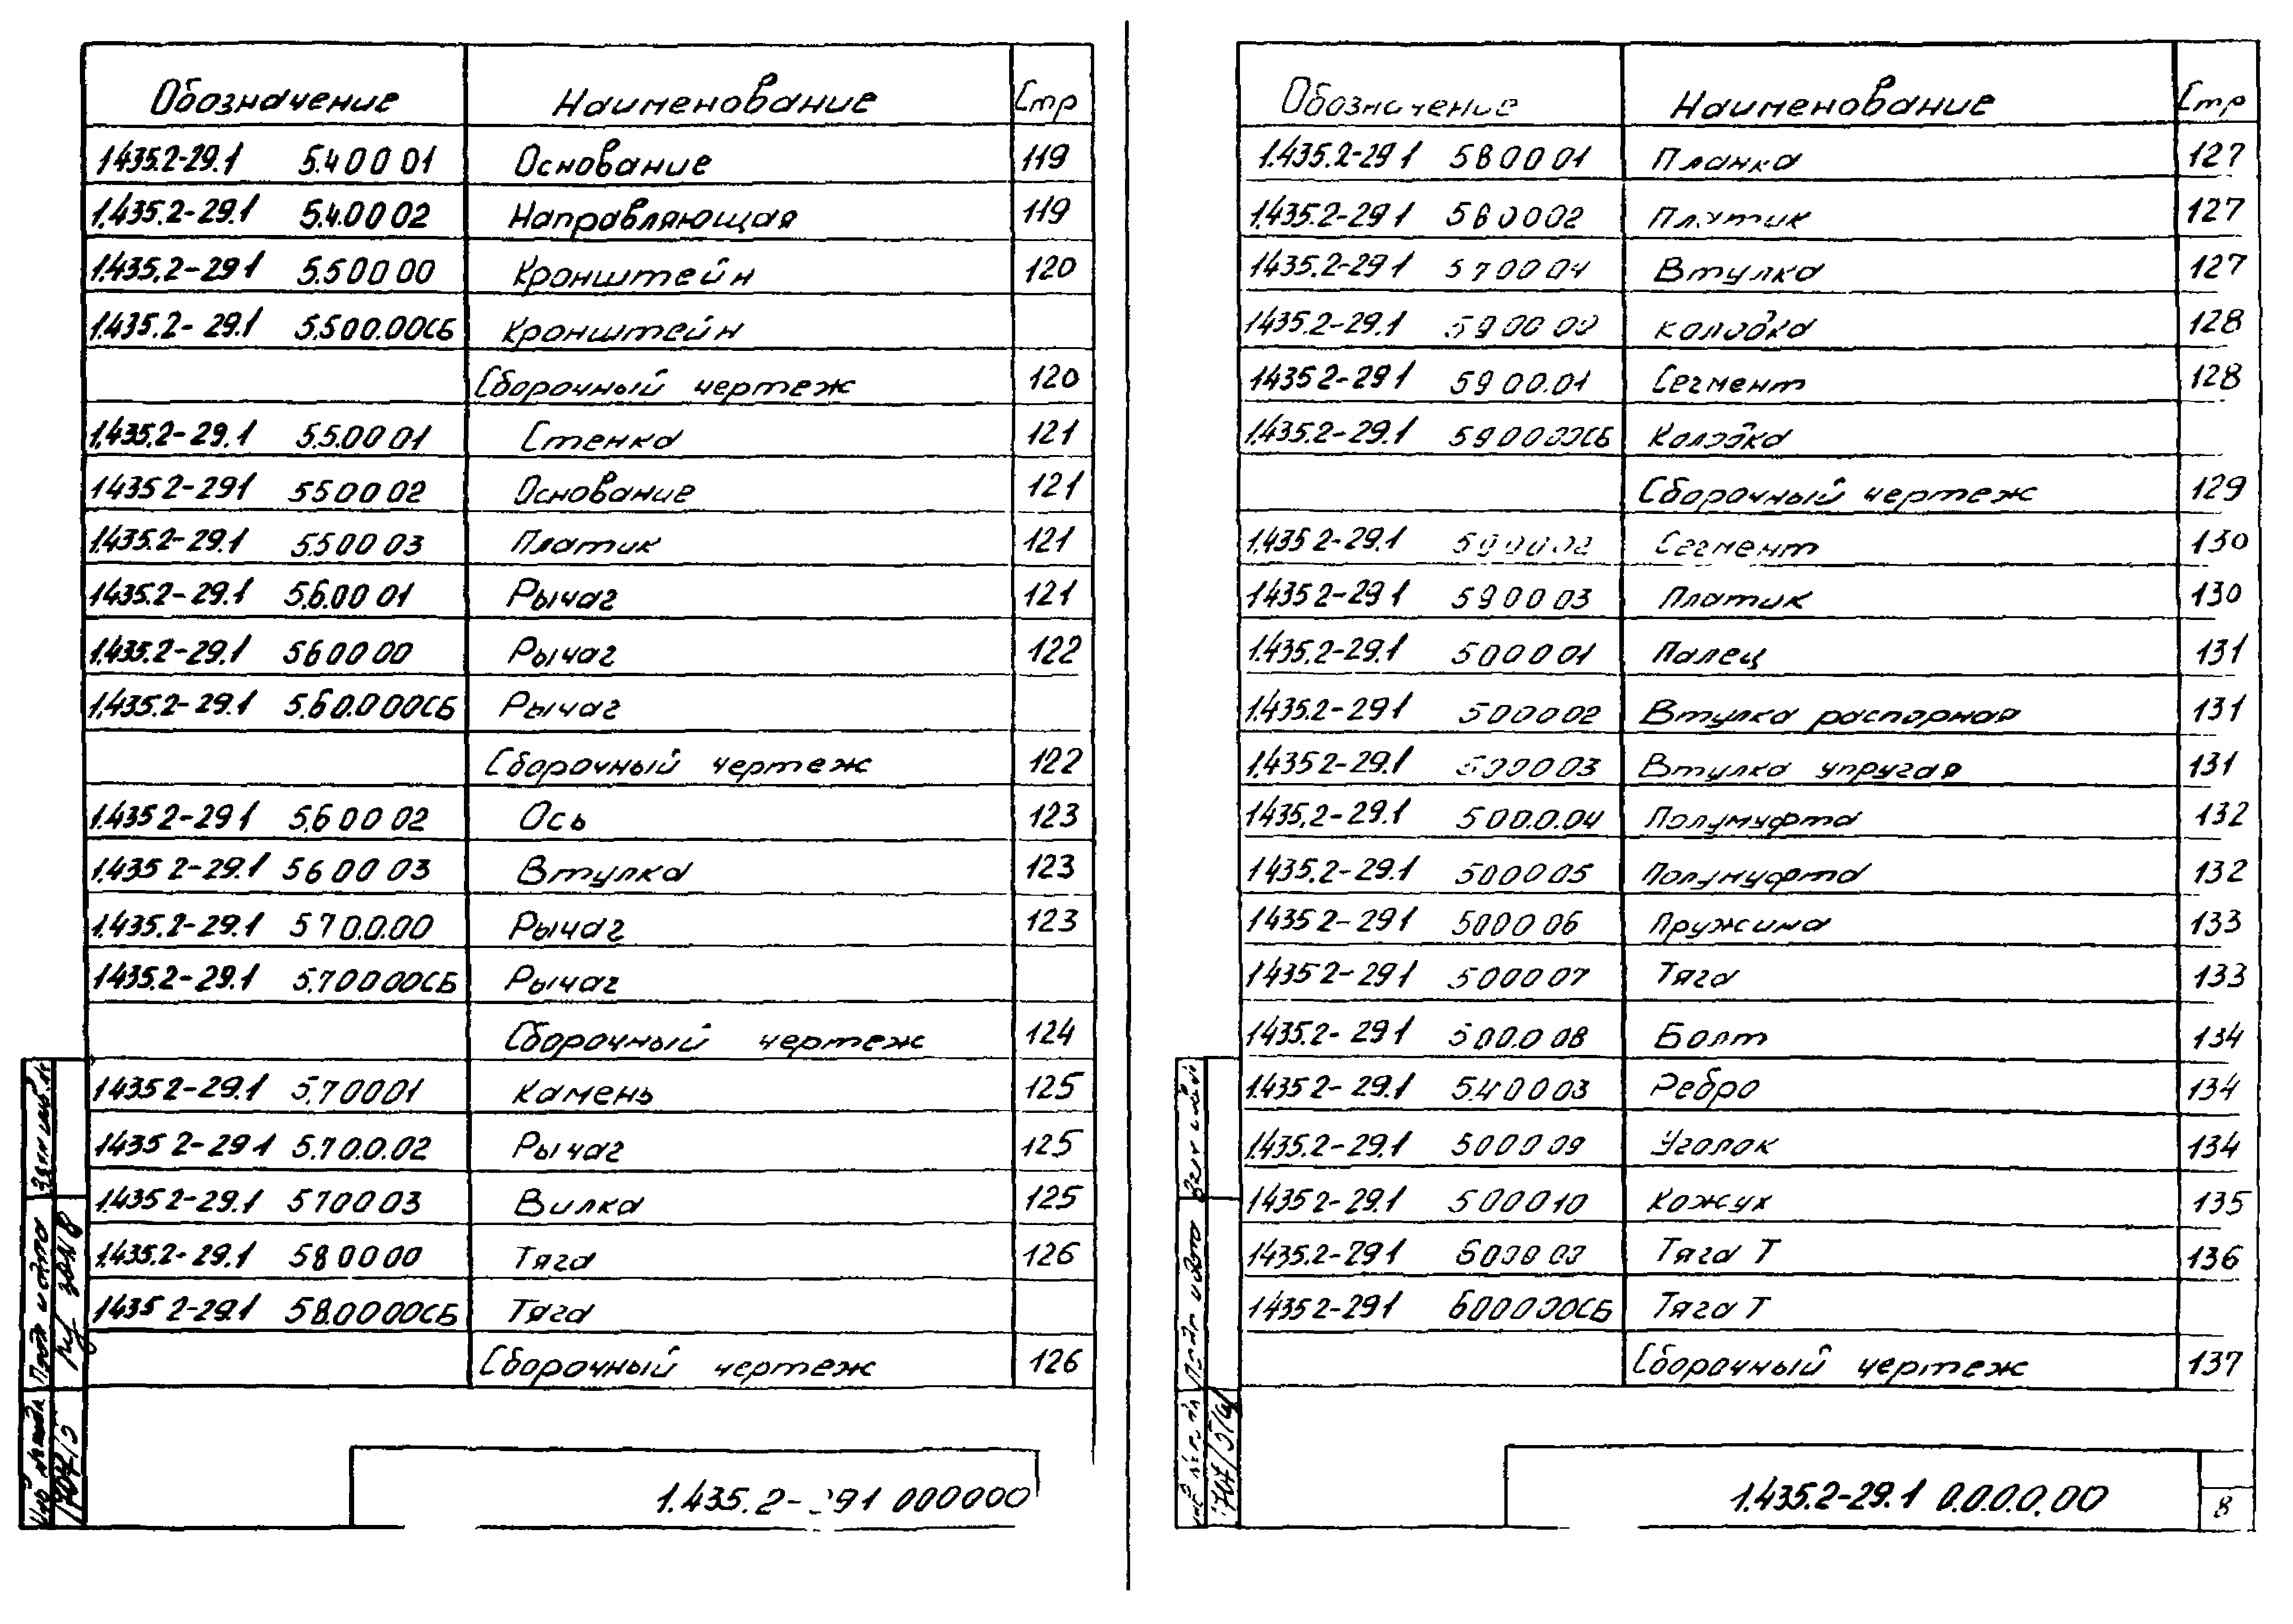 Обозначение Наименование Стр
1.435.2-29.1 5.4.00 01 Основание 119
1.435.2-29.1 5.4.00 02 Направляющая 119
1.435.2-29 1 5.5 00 00 Кронштейн 120
1.435.2-29.1 5.5 00.00СБ Кронштейн
Сборочный чертеж 120
1.435.2-29.1 5.5.00 01 Стенка 121
1435 2-291 5 5 00 02 Основание 121
1.435.2-29.1 5.5 00 03 Платик 121
1.435.2-29.1 5.6.00 01 Рычаг 121
1.435.2-29.1 5 6 00 00 Рычаг 122
1.435.2-29.1 5.6 0.0 00СБ Рычаг
Сборочный чертеж 122
1.435 2-29 1 5.6 00 02 Ось 123
1.435 2-29.1 5 6 00 03 Втулка 123
1.435.2-29.1 5 7 0.0.00 Рычаг 123
1.435.2-29.1 5.7 0 0 00СБ Рычаг
Сборочный чертеж 124
1.435 2-29.1 5.7 00 01 Камень 125
1.435 2-29 1 5.7 0.0.02 Рычаг 125
1.435 2-29.1 5 7 00 03 Вилка 125
1.435.2-29.1 5 8 00 00 Тяга 126
1.435 2-29.1 5 8.0 0 00СБ Тяга
Сборочный чертеж 126
1.435.2- 291 000000
Обозначение Наименование Стр
1.435.2-29 1 5 8 00 01 Планка 127
1.435.2-29 1 5 8 00 02 Платик 127
1.435.2-29 1 5 7 00 04 Втулка 127
1435.2-29.1 5 9 00 00 Колодка 128
1435 2-29 1 5 9 00.01 Сегмент 128
1.435.2-29.1 5 9 00 00СБ Колодка
Сборочный чертеж 129
1.435 2-29.1 Сегмент 130
1435 2-29 1 5 9 00 03 Платик 130
1.435.2-29.1 5 0 00 01 Палец 131
1.435.2-29 1 5 0 00 02 Втулка распорная 131
1.435 2-29.1 5 0 00 03 Втулка упругая 131
1435.2-29.1 5 0 0.0.04 Полумуфта 132
1.435.2-29.1 5 0 00 05 Полумуфта 132
1435 2-291 5 0 00 06 Пружина 133
1435 2-291 5 0 00 07 Тяга 133
1435.2-291 5 0 0.0 08 Болт 134
1.435 2-29.1 5.4 0 0 03 Ребро 134
1.435.2-29.1 5 0 00 09 Уголок 134
1435 2-29.1 5 0 00 10 Кожух 135
1435.2-291 6 0 00 00 Тяга Т 136
1435 2-291 6 0 0 0 00СБ Тяга Т
Сборочный чертеж 137
1.435.2-29.1 0.0.0.0.00 8